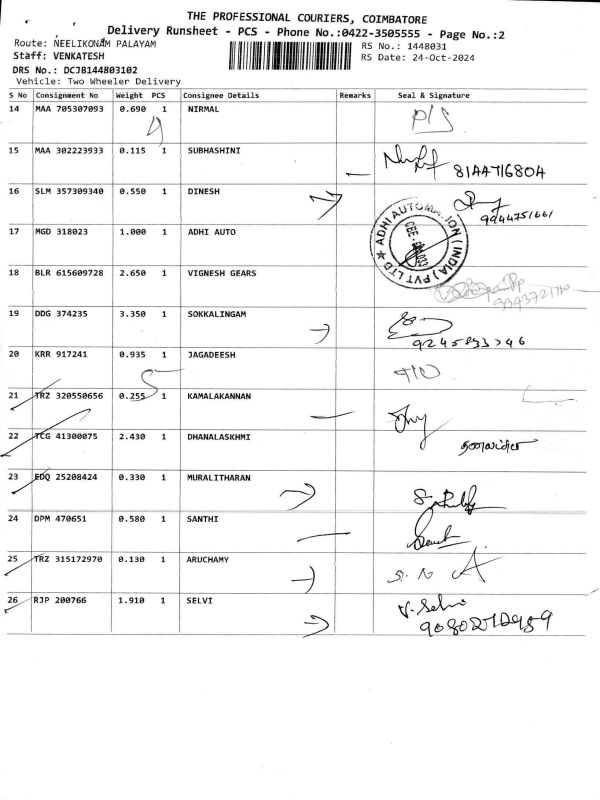 THE PROFESSIONAL COURIERS, COIMBATORE
Delivery Runsheet - PCS - Phone No.:0422-3505555 - Page No.:2
Route: NEELIKONAM PALAYAM RS No.: 1448031
Staff: VENKATESH RS Date: 24-Oct-2024
DRS No.: DCJB144803102
Vehicle: Two Wheeler Delivery
S No Consignment No Weight PCS Consignee Details Remarks Seal & Signature
14 MAA 705307093 0.690 1 NIRMAL
P/S
15 MAA 302223933 0.115 1 SUBHASHINI
8144716804
16 SLM 357309340 0.550 1 DINESH
9944751661
17 MGD 318023 1.000 1 ADHI AUTO
ADHI AUTOMATION (INDIA) PVT LTD
18 BLR 615609728 2.650 1 VIGNESH GEARS
19 DDG 374235 3.350 1 SOKKALINGAM
20 KRR 917241 0.935 1 JAGADEESH
21 TRZ 320550656 0.255 1 KAMALAKANNAN
22 TCG 41300075 2.430 1 DHANALASKHMI
23 EDQ 25208424 0.330 1 MURALITHARAN
24 DPM 470651 0.580 1 SANTHI
25 TRZ 315172970 0.130 1 ARUCHAMY
S. N
26 RJP 200766 1.910 1 SELVI
V. Selvi